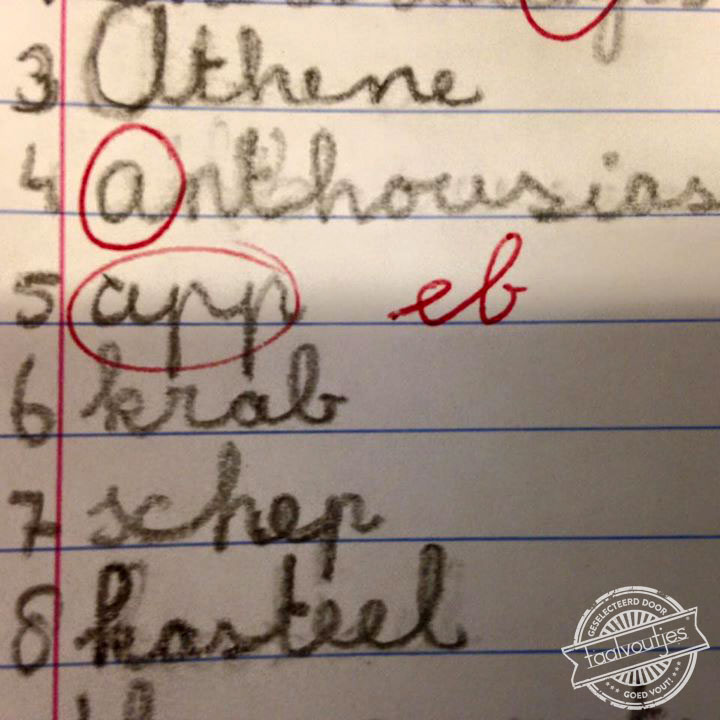 3 Athene
4 anthousias
5 app eb
6 krab
7 schep
8 kasteel
GESELECTEERD DOOR
taalvoutjes
GOED VOUT!